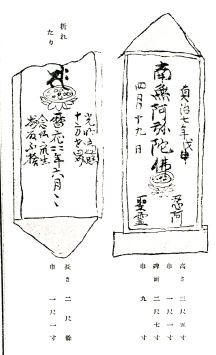 貞治七年戊申
南無阿弥陀佛
四月十九日
聖霊
高さ 三尺五寸
巾 一尺一寸
碑面 二尺七寸
巾 九寸
折れたり
光明遍照
十方世界
暦応二年六月
念佛衆生
長さ 二尺餘
巾 一尺一寸